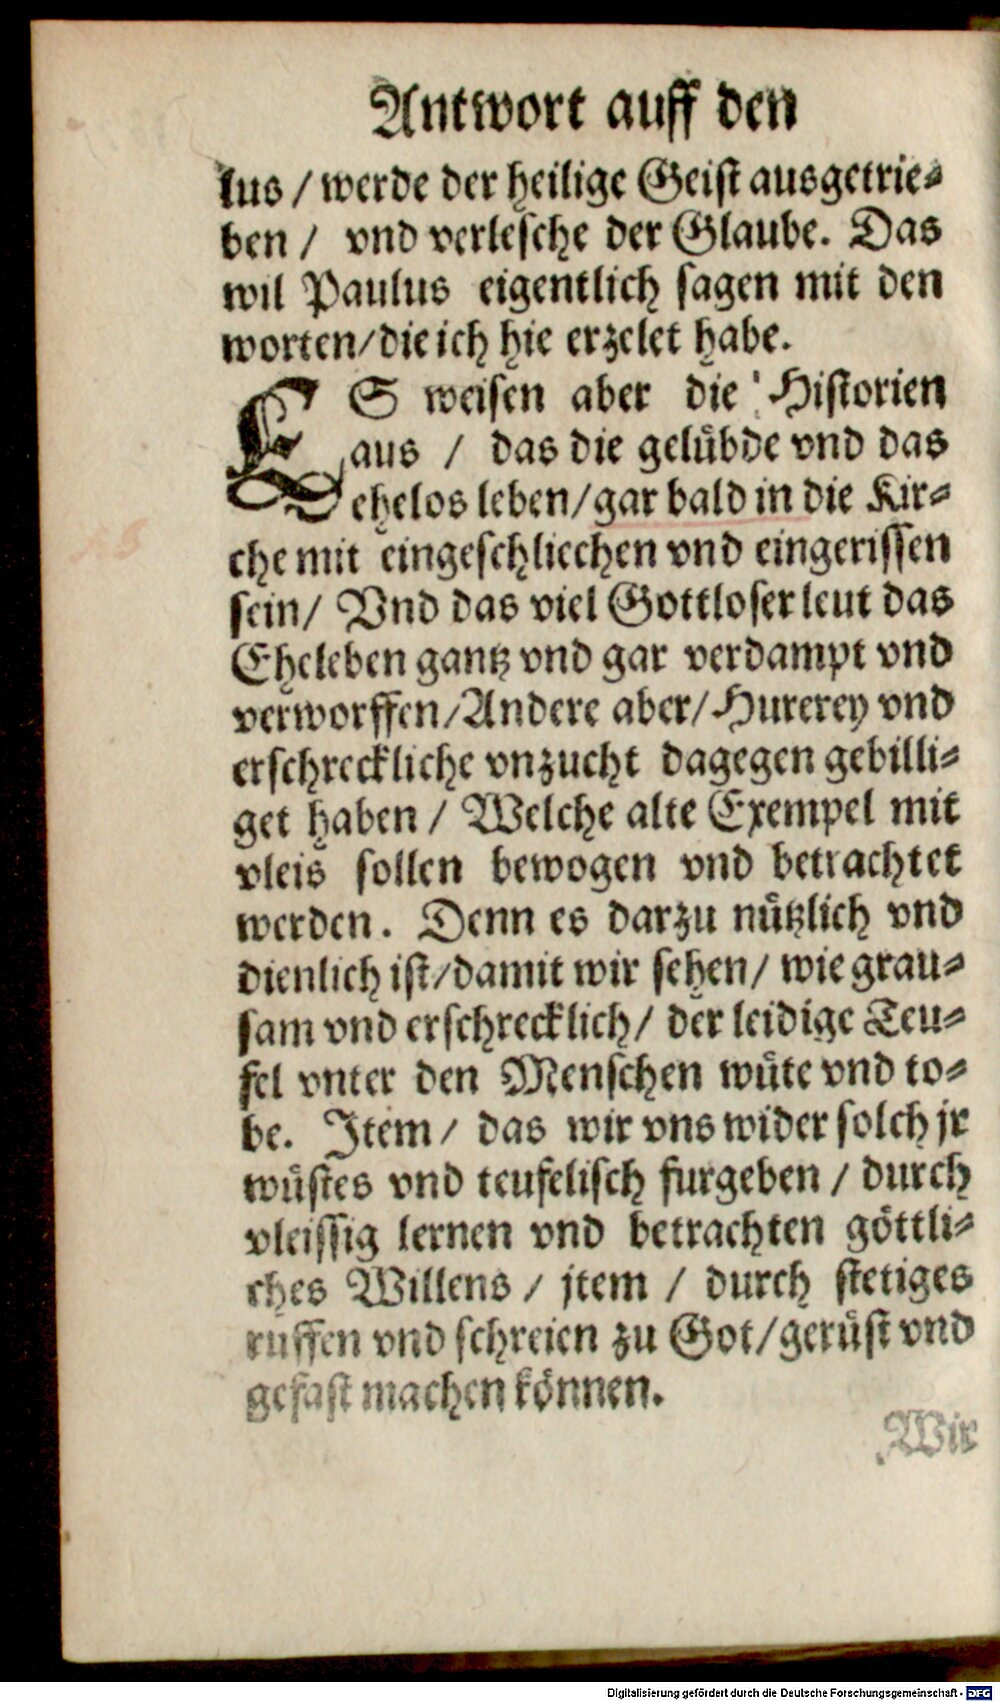 Antwort auff den
lus / werde der heilige Geist ausgetrie⸗
ben / vnd verlesche der Glaube. Das
wil Paulus eigentlich sagen mit den
worten / die ich hie erzelet habe.
ES weisen aber die Historien
aus / das die gelübde vnd das
ehelos leben / gar bald in die Kir⸗
che mit eingeschliechen vnd eingerissen
sein / Vnd das viel Gottloser leut das
Eheleben gantz vnd gar verdampt vnd
verworffen / Andere aber / Hurerey vnd
erschreckliche vnzucht dagegen gebilli⸗
get haben / Welche alte Exempel mit
vleis sollen bewogen vnd betrachtet
werden. Denn es darzu nützlich vnd
dienlich ist / damit wir sehen / wie grau⸗
sam vnd erschrecklich / der leidige Teu⸗
fel vnter den Menschen wüte vnd to⸗
be. Item / das wir vns wider solch jr
wüstes vnd teufelisch furgeben / durch
vleissig lernen vnd betrachten göttli⸗
ches Willens / jtem / durch stetiges
ruffen vnd schreien zu Got / gerüst vnd
gefast machen können.
Wir
Digitalisierung gefördert durch die Deutsche Forschungsgemeinschaft - DFG